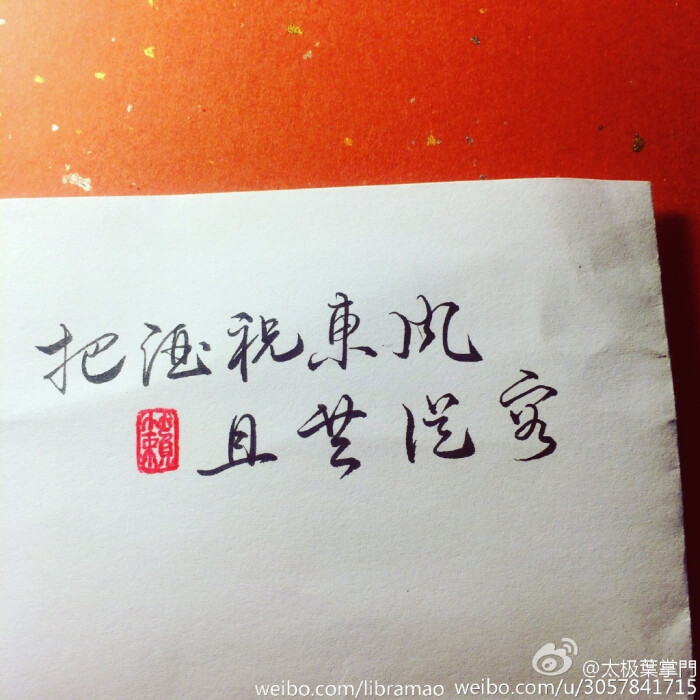 把酒祝東風
且共從容
籟
@太极葉掌門
weibo.com/libramao weibo.com/u/3057841715